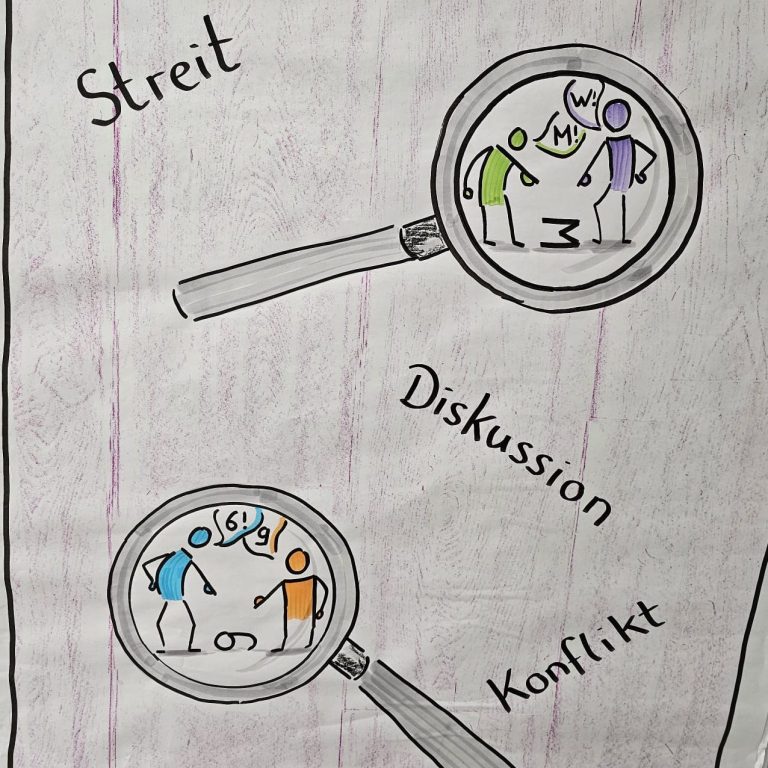 Streit
W!
M!
M
Diskussion
6!
9
6
Konflikt